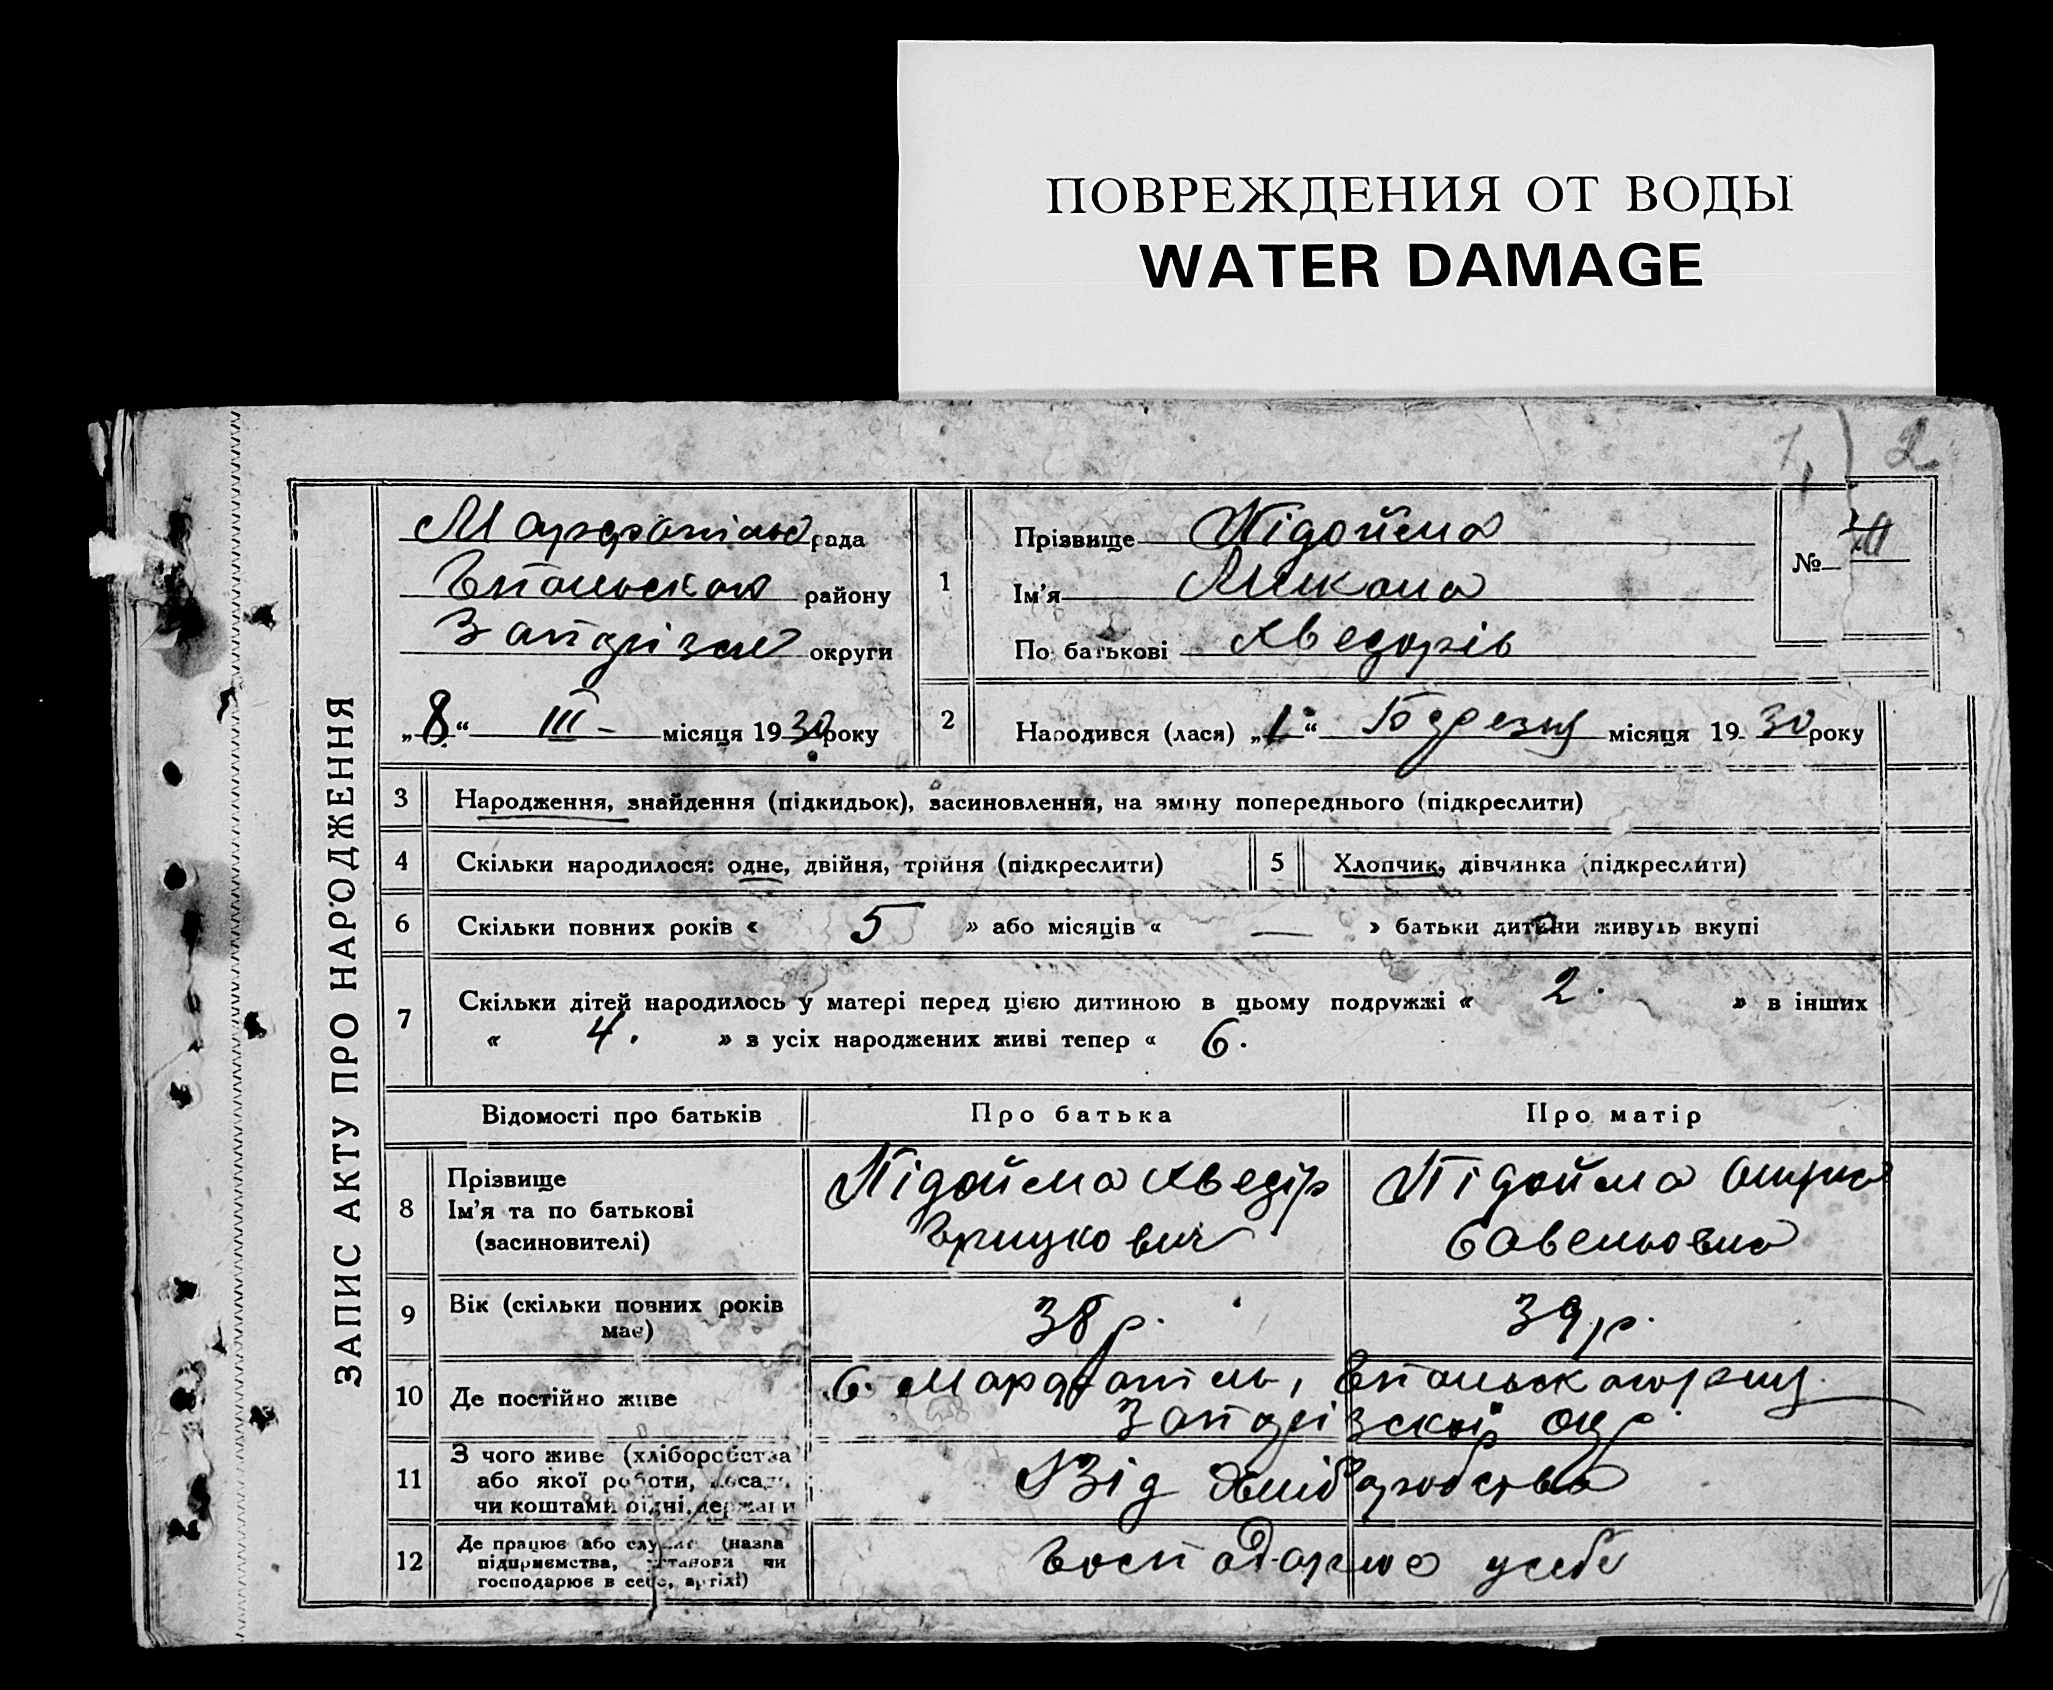 ПОВРЕЖДЕНИЯ ОТ ВОДЫ
WATER DAMAGE
7, 2
ЗАПИС АКТУ ПРО НАРОДЖЕННЯ
рада
району
округи
„8“ III – місяця 1930 року
1
Прізвище Підойма
Ім'я Микола
По батькові Хведорів
№
2
Народився (лася) „1“ Березня місяця 1930 року
3 Народження, знайдення (підкидьок), засиновлення, на зміну попереднього (підкреслити)
4 Скільки народилося: одне, двійня, трійня (підкреслити)
5 Хлопчик, дівчинка (підкреслити)
6 Скільки повних років « 5 » або місяців « — » батьки дитини живуть вкупі
7 Скільки дітей народилось у матері перед цією дитиною в цьому подружжі « 2. » в інших
« 4. » з усіх народжених живі тепер « 6.
Відомості про батьків Про батька Про матір
8 Прізвище
Ім'я та по батькові
(засиновителі)
Підойма Хведір
Грицкович
Підойма
Савельовна
9 Вік (скільки повних років
має)
38 р. 39 р.
10 Де постійно живе
С. Марфопіль,
окр.
11 З чого живе (хліборобства
або якої роботи, посади,
чи коштами рідні, держави
Від хліборобства
12 Де працює або служить (назва
підприємства, установи чи
господарює в себе, артілі)
Господарює у себе